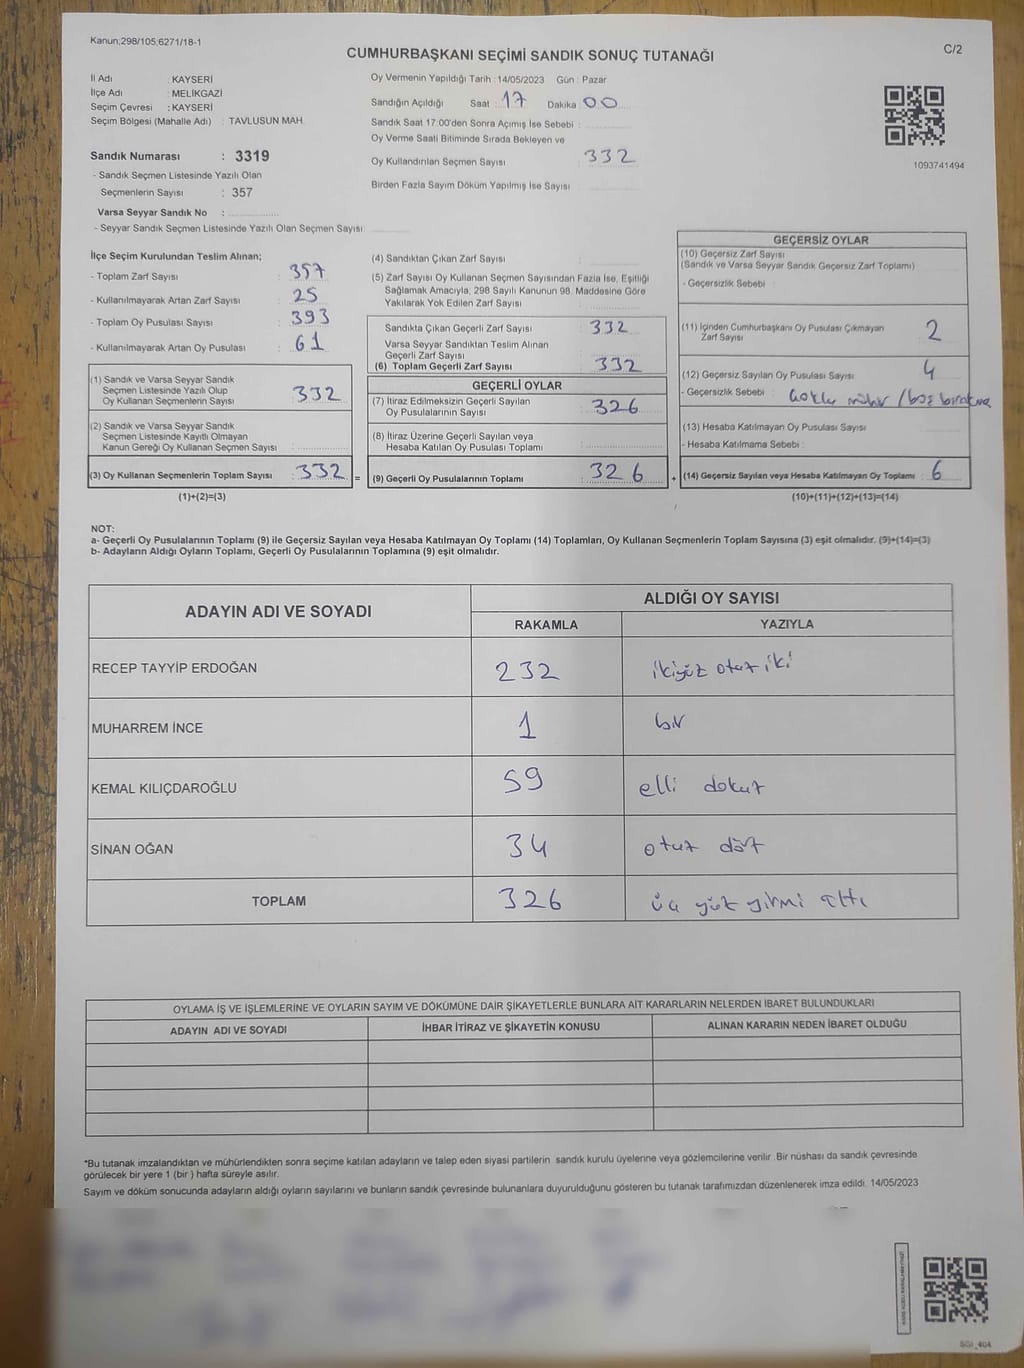 Kanun;298/105;6271/18-1
C/2
CUMHURBAŞKANI SEÇİMİ SANDIK SONUÇ TUTANAĞI
İl Adı : KAYSERİ
İlçe Adı : MELİKGAZİ
Seçim Çevresi : KAYSERİ
Seçim Bölgesi (Mahalle Adı) : TAVLUSUN MAH.
Sandık Numarası : 3319
- Sandık Seçmen Listesinde Yazılı Olan
Seçmenlerin Sayısı : 357
Varsa Seyyar Sandık No :
- Seyyar Sandık Seçmen Listesinde Yazılı Olan Seçmen Sayısı:
Oy Vermenin Yapıldığı Tarih : 14/05/2023 Gün : Pazar
Sandığın Açıldığı Saat : 17 Dakika 00
Sandık Saat 17:00'den Sonra Açımış İse Sebebi :
Oy Verme Saati Bitiminde Sırada Bekleyen ve
Oy Kullandırılan Seçmen Sayısı : 332
Birden Fazla Sayım Döküm Yapılmış İse Sayısı
1093741494
İlçe Seçim Kurulundan Teslim Alınan;
- Toplam Zarf Sayısı : 357
- Kullanılmayarak Artan Zarf Sayısı : 25
- Toplam Oy Pusulası Sayısı : 393
- Kullanılmayarak Artan Oy Pusulası : 61
(1) Sandık ve Varsa Seyyar Sandık
Seçmen Listesinde Yazılı Olup
Oy Kullanan Seçmenlerin Sayısı : 332
(2) Sandık ve Varsa Seyyar Sandık
Seçmen Listesinde Kayıtlı Olmayan
Kanun Gereği Oy Kullanan Seçmen Sayısı :
(3) Oy Kullanan Seçmenlerin Toplam Sayısı : 332 =
(1)+(2)=(3)
(4) Sandıktan Çıkan Zarf Sayısı :
(5) Zarf Sayısı Oy Kullanan Seçmen Sayısından Fazla İse, Eşitliği
Sağlamak Amacıyla; 298 Sayılı Kanunun 98. Maddesine Göre
Yakılarak Yok Edilen Zarf Sayısı :
Sandıkta Çıkan Geçerli Zarf Sayısı : 332
Varsa Seyyar Sandıktan Teslim Alınan
Geçerli Zarf Sayısı :
(6) Toplam Geçerli Zarf Sayısı : 332
GEÇERLİ OYLAR
(7) İtiraz Edilmeksizin Geçerli Sayılan
Oy Pusulalarının Sayısı : 326
(8) İtiraz Üzerine Geçerli Sayılan veya
Hesaba Katılan Oy Pusulası Toplamı :
(9) Geçerli Oy Pusulalarının Toplamı : 326 +
GEÇERSİZ OYLAR
(10) Geçersiz Zarf Sayısı
(Sandık ve Varsa Seyyar Sandık Geçersiz Zarf Toplamı)
- Geçersizlik Sebebi :
(11) İçinden Cumhurbaşkanı Oy Pusulası Çıkmayan
Zarf Sayısı : 2
(12) Geçersiz Sayılan Oy Pusulası Sayısı : 4
- Geçersizlik Sebebi : çoklu mühür / boş bırakma
(13) Hesaba Katılmayan Oy Pusulası Sayısı :
- Hesaba Katılmama Sebebi :
(14) Geçersiz Sayılan veya Hesaba Katılmayan Oy Toplamı : 6
(10)+(11)+(12)+(13)=(14)
NOT:
a- Geçerli Oy Pusulalarının Toplamı (9) ile Geçersiz Sayılan veya Hesaba Katılmayan Oy Toplamı (14) Toplamları, Oy Kullanan Seçmenlerin Toplam Sayısına (3) eşit olmalıdır. (9)+(14)=(3)
b- Adayların Aldığı Oyların Toplamı, Geçerli Oy Pusulalarının Toplamına (9) eşit olmalıdır.
ADAYIN ADI VE SOYADI ALDIĞI OY SAYISI
RAKAMLA YAZIYLA
RECEP TAYYİP ERDOĞAN 232 ikiyüz otuz iki
MUHARREM İNCE 1 bir
KEMAL KILIÇDAROĞLU 59 elli dokuz
SİNAN OĞAN 34 otuz dört
TOPLAM 326 üç yüz yirmi altı
OYLAMA İŞ VE İŞLEMLERİNE VE OYLARIN SAYIM VE DÖKÜMÜNE DAİR ŞİKAYETLERLE BUNLARA AİT KARARLARIN NELERDEN İBARET BULUNDUKLARI
ADAYIN ADI VE SOYADI İHBAR İTİRAZ VE ŞİKAYETİN KONUSU ALINAN KARARIN NEDEN İBARET OLDUĞU
*Bu tutanak imzalandıktan ve mühürlendikten sonra seçime katılan adayların ve talep eden siyasi partilerin sandık kurulu üyelerine veya gözlemcilerine verilir .Bir nüshası da sandık çevresinde
görülecek bir yere 1 (bir ) hafta süreyle asılır.
Sayım ve döküm sonucunda adayların aldığı oyların sayılarını ve bunların sandık çevresinde bulunanlara duyurulduğunu gösteren bu tutanak tarafımızdan düzenlenerek imza edildi. 14/05/2023